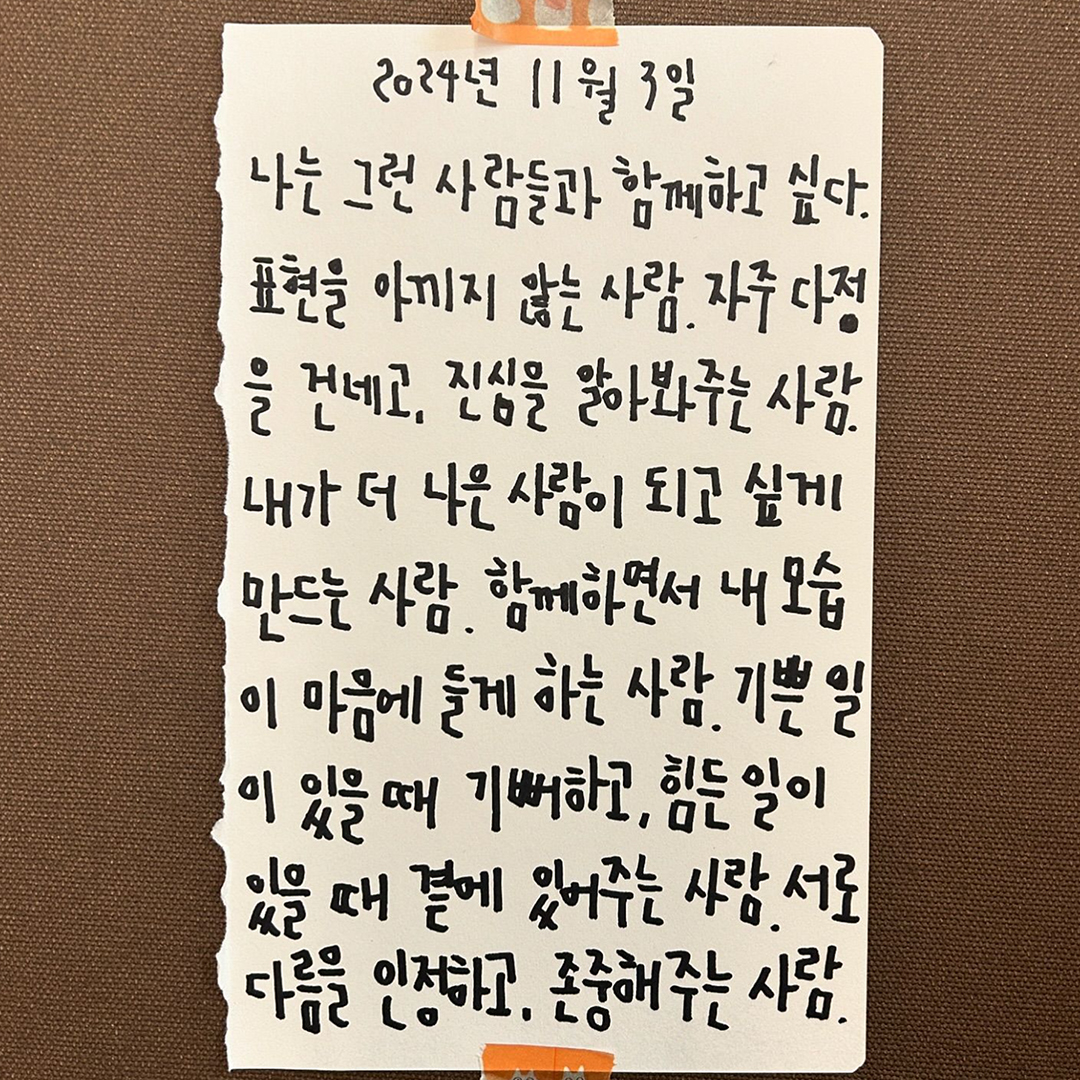 2024년 11월 3일
나는 그런 사람들과 함께하고 싶다.
표현을 아끼지 않는 사람. 자주 다정
을 건네고, 진심을 알아봐주는 사람.
내가 더 나은 사람이 되고 싶게
만드는 사람. 함께하면서 내 모습
이 마음에 들게 하는 사람. 기쁜 일
이 있을 때 기뻐하고, 힘든 일이
있을 때 곁에 있어주는 사람. 서로
다름을 인정하고, 존중해주는 사람.